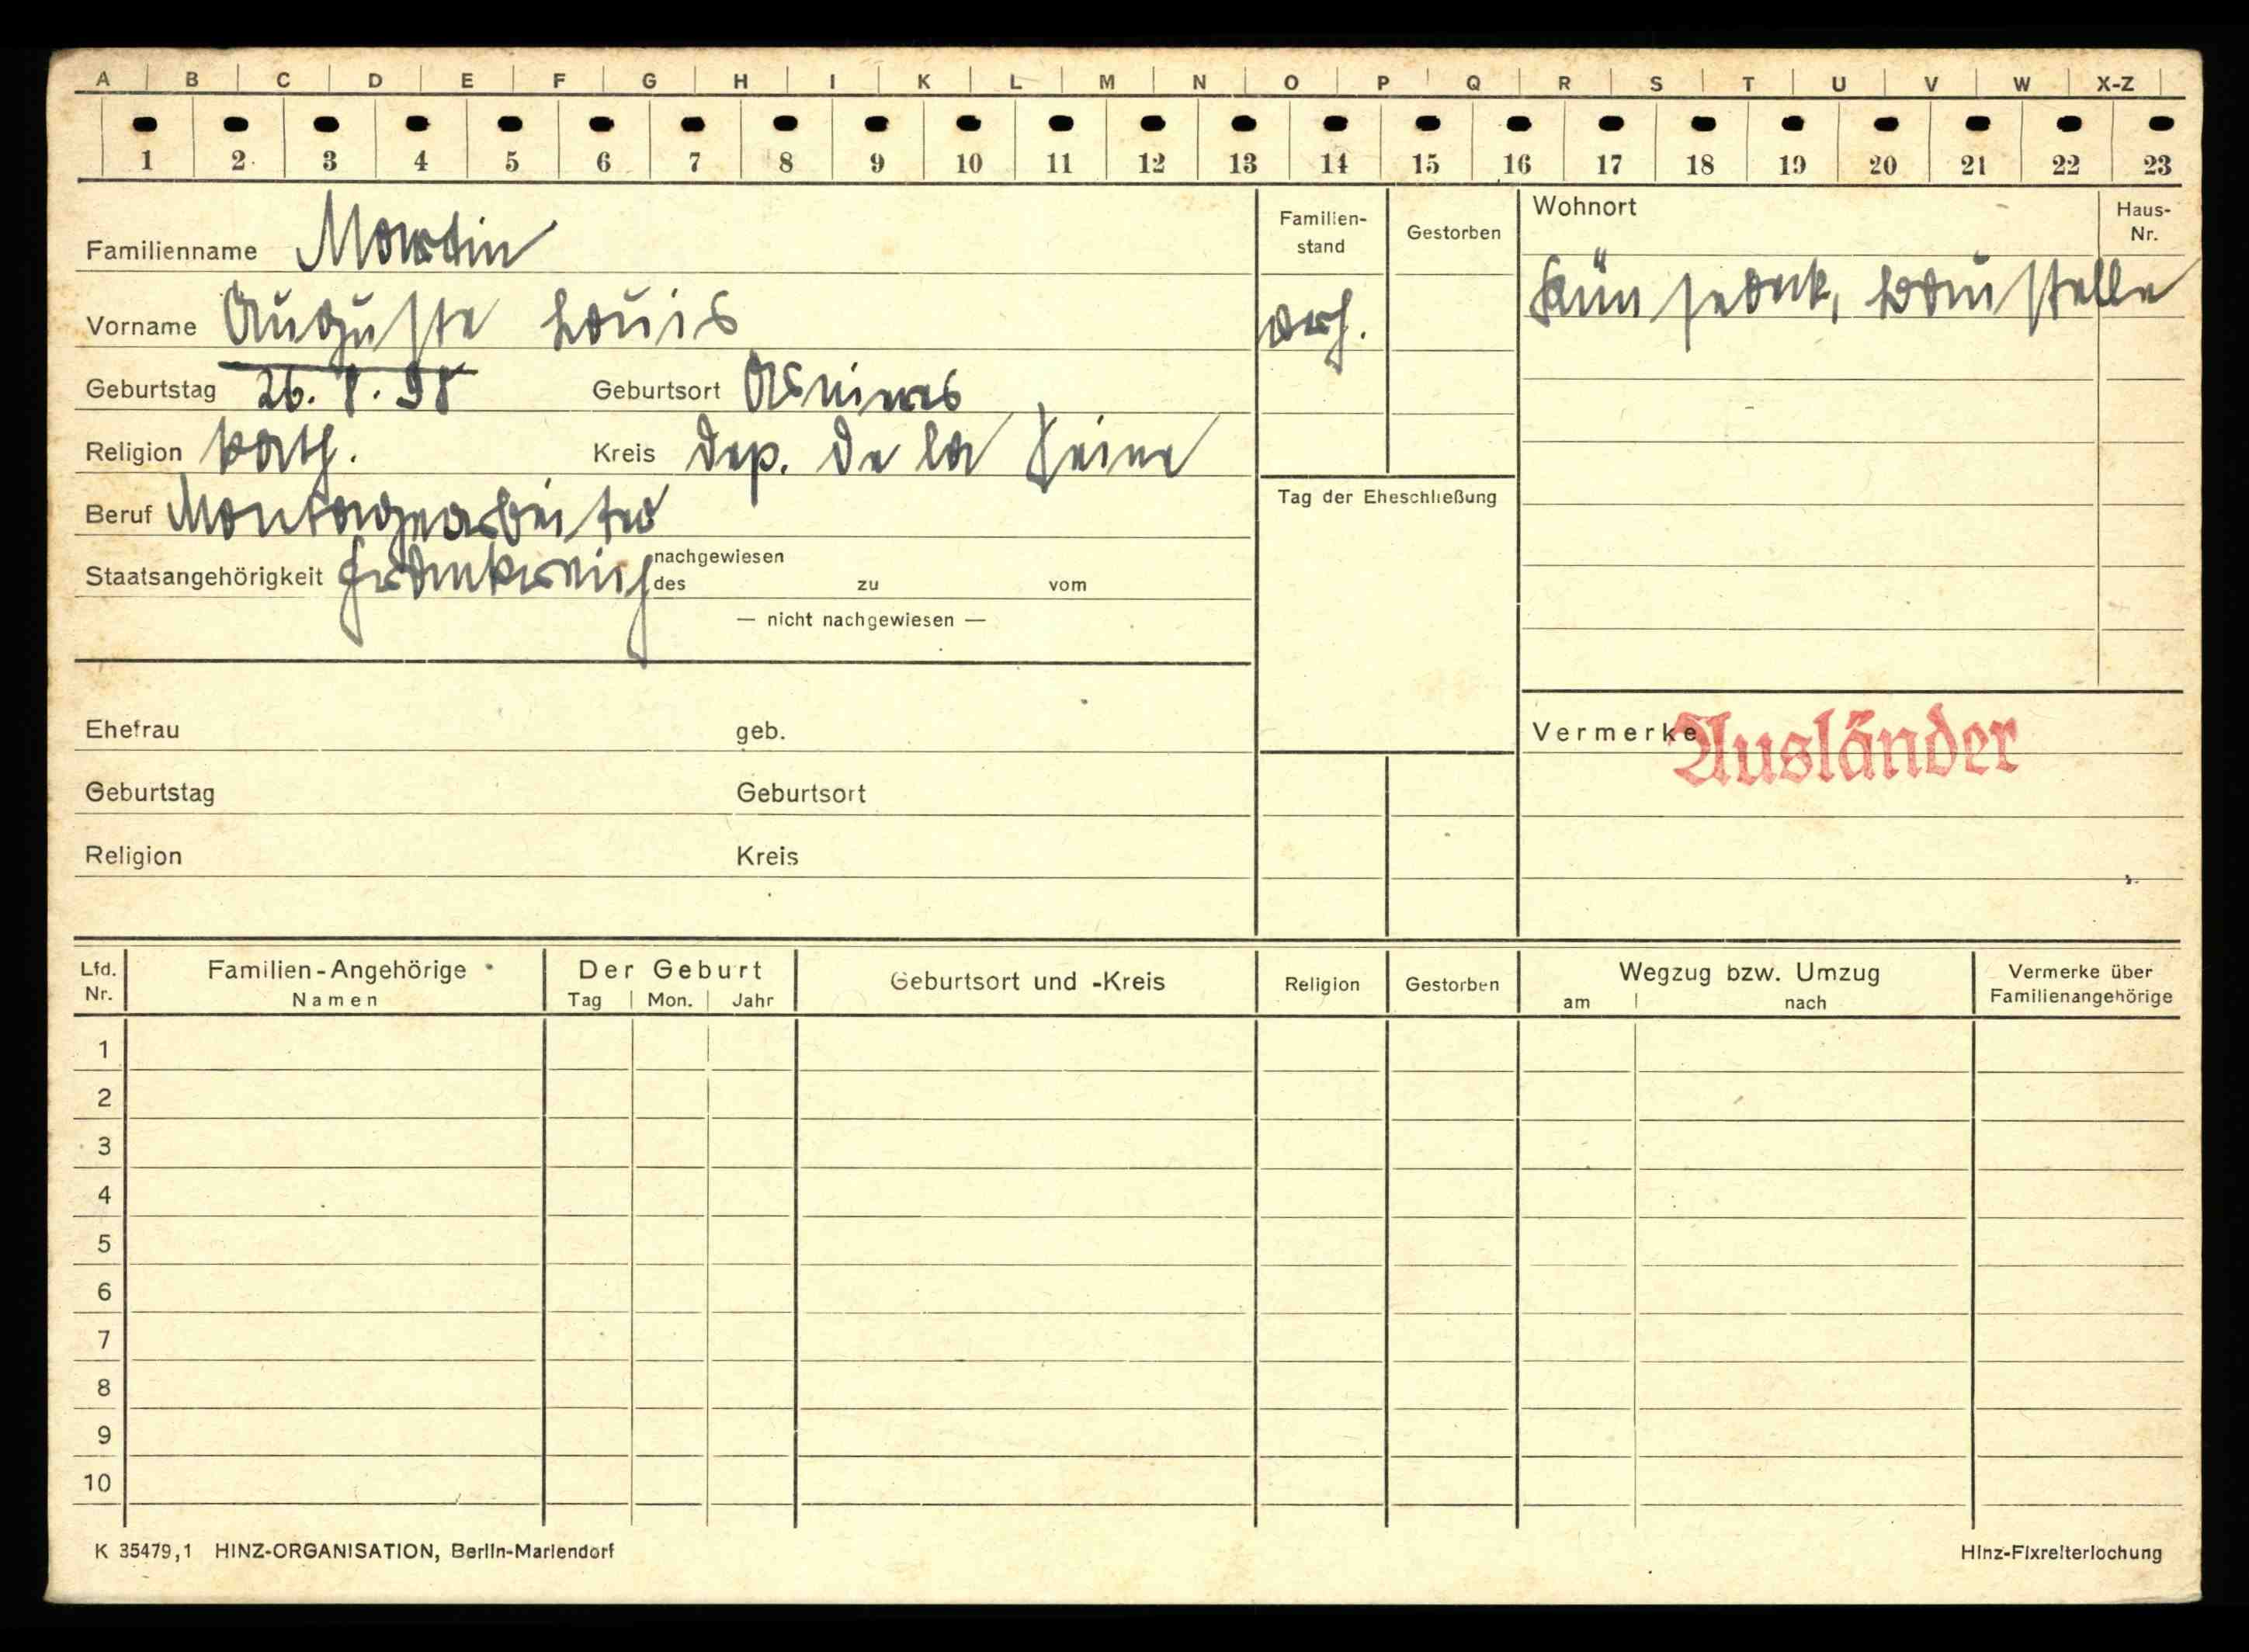 A B C D E F G H I K L M N O P Q R S T U V W X-Z
1 2 3 4 5 6 7 8 9 10 11 12 13 14 15 16 17 18 19 20 21 22 23
Familienname Martin
Vorname Auguste Louis
Geburtstag 26. 8. 98 Geburtsort Asnieres
Religion kath. Kreis Dep. de la Seine
Beruf Montagearbeiter
Staatsangehörigkeit Frankreich nachgewiesen
des zu vom
— nicht nachgewiesen —
Familien-
stand
verh.
Gestorben
Tag der Eheschließung
Wohnort
Haus-
Nr.
Baustelle
Ehefrau geb.
Geburtstag Geburtsort
Religion Kreis
Vermerke Ausländer
Lfd.
Nr.
Familien-Angehörige
Namen
Der Geburt
Tag Mon. Jahr
Geburtsort und -Kreis
Religion
Gestorben
Wegzug bzw. Umzug
am nach
Vermerke über
Familienangehörige
1
2
3
4
5
6
7
8
9
10
K 35479,1 HINZ-ORGANISATION, Berlin-Mariendorf
Hinz-Fixreiterlochung